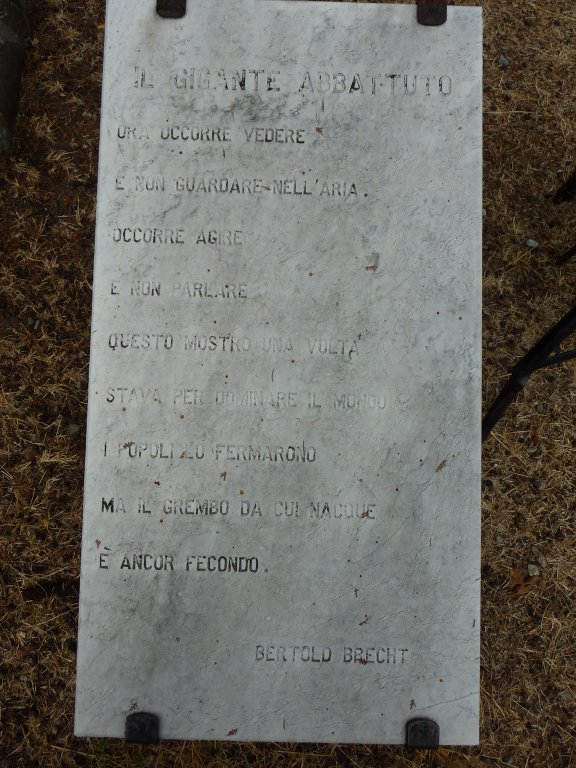 IL GIGANTE ABBATTUTO
ORA OCCORRE VEDERE
E NON GUARDARE NELL'ARIA.
OCCORRE AGIRE
E NON PARLARE
QUESTO MOSTRO UNA VOLTA
STAVA PER DOMINARE IL MONDO
I POPOLI LO FERMARONO
MA IL GREMBO DA CUI NACQUE
È ANCOR FECONDO.
BERTOLD BRECHT